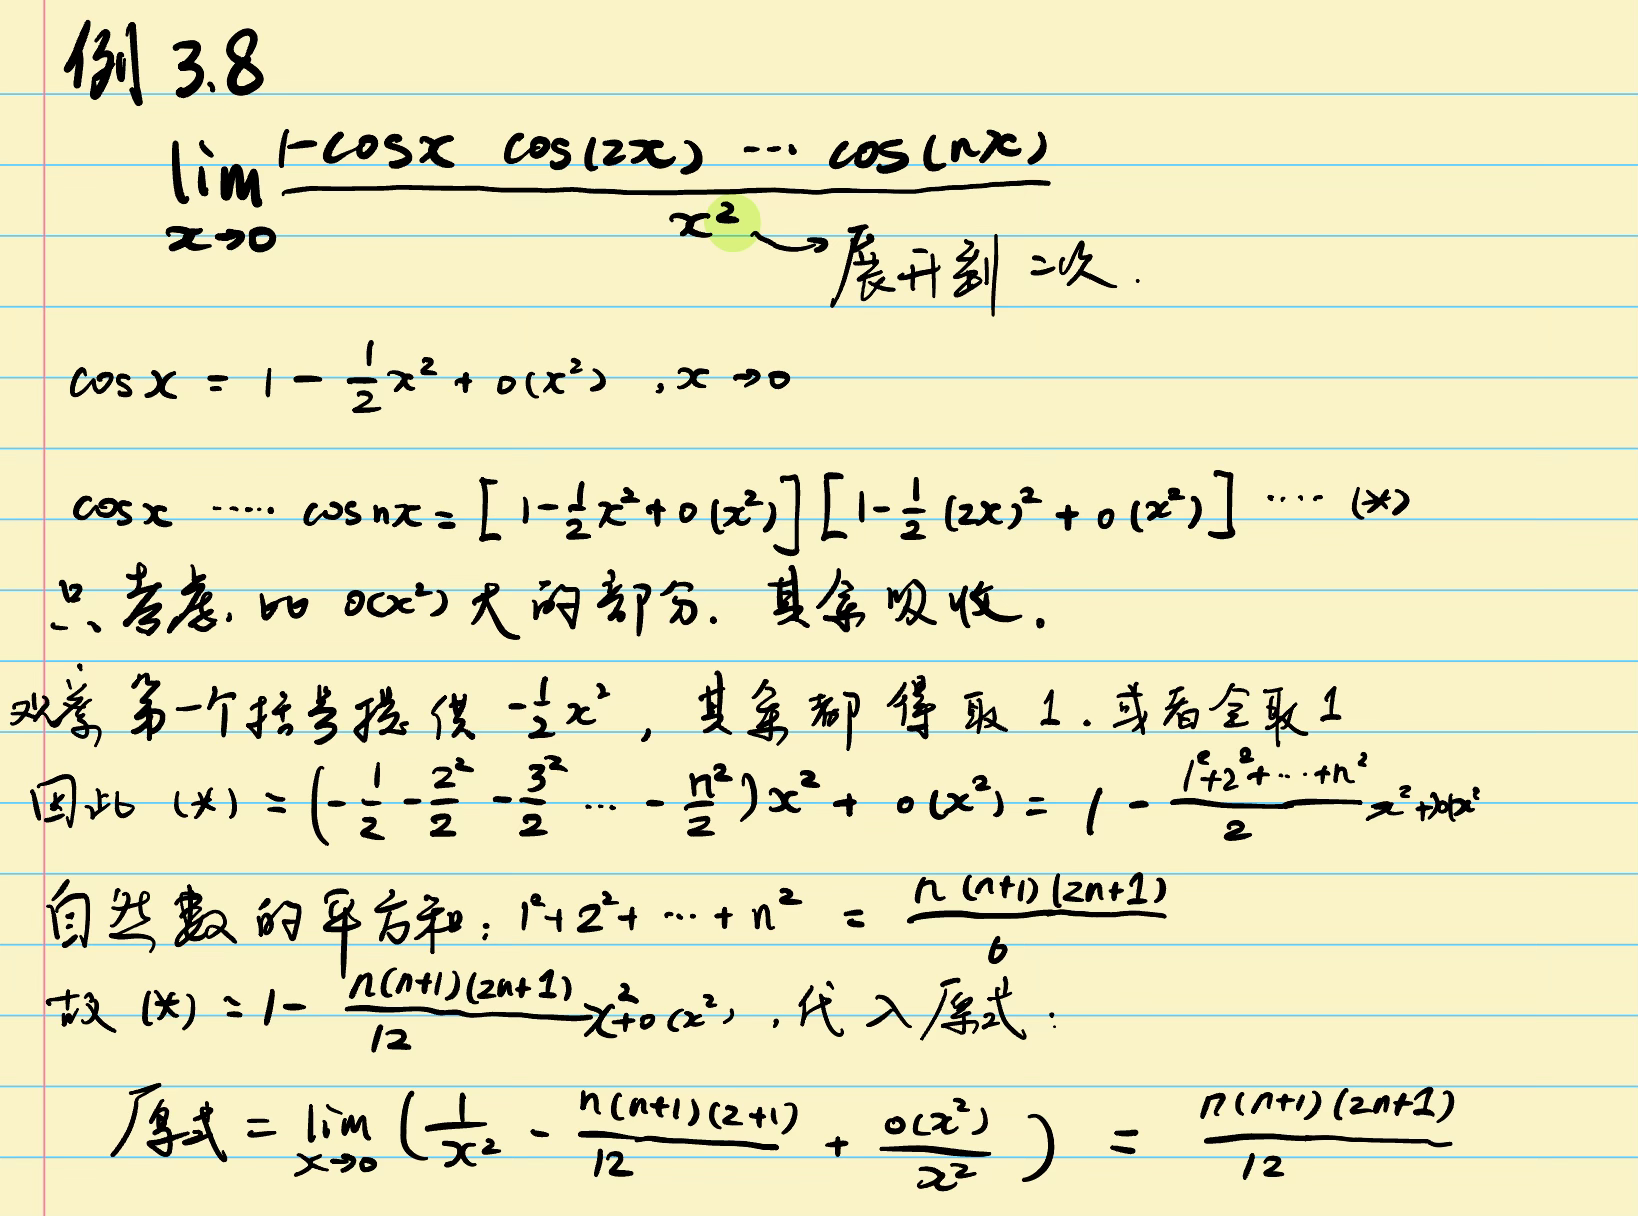 例 3.8
lim_{x→0} \frac{1-cosx cos(2x) ··· cos(nx)}{x²}
展开到二次.
cosx = 1 - \frac{1}{2}x² + o(x²) , x→0
cosx ····· cosnx = [1-\frac{1}{2}x²+o(x²)][1-\frac{1}{2}(2x)²+o(x²)] ···· (*)
只考虑比 o(x²) 大的部分. 其余吸收.
观察第一个括号提供 -\frac{1}{2}x², 其余都得取 1. 或者全取 1
因此 (*) = (-\frac{1}{2} - \frac{2²}{2} - \frac{3²}{2} ··· - \frac{n²}{2})x² + o(x²) = 1 - \frac{1²+2²+···+n²}{2}x²+o(x²
自然数的平方和: 1²+2²+···+n² = \frac{n(n+1)(2n+1)}{6}
故 (*) = 1 - \frac{n(n+1)(2n+1)}{12}x²+o(x²) , 代入原式:
原式 = lim_{x→0} (\frac{1}{x²} - \frac{n(n+1)(2+1)}{12} + \frac{o(x²)}{x²}) = \frac{n(n+1)(2n+1)}{12}